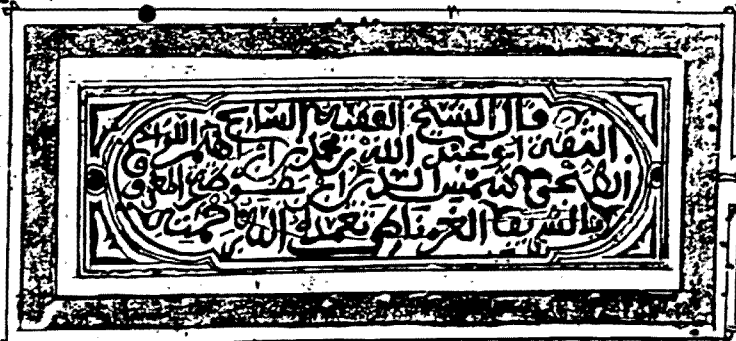 قال الشيخ الفقيه السايح
الثقة ابو عبد الله محمد بن ابراهيم اللواتي
الطنجي شمس الدين ابن بطوطة المعروف
بالشريف الغرناطي تغمده الله برحمته